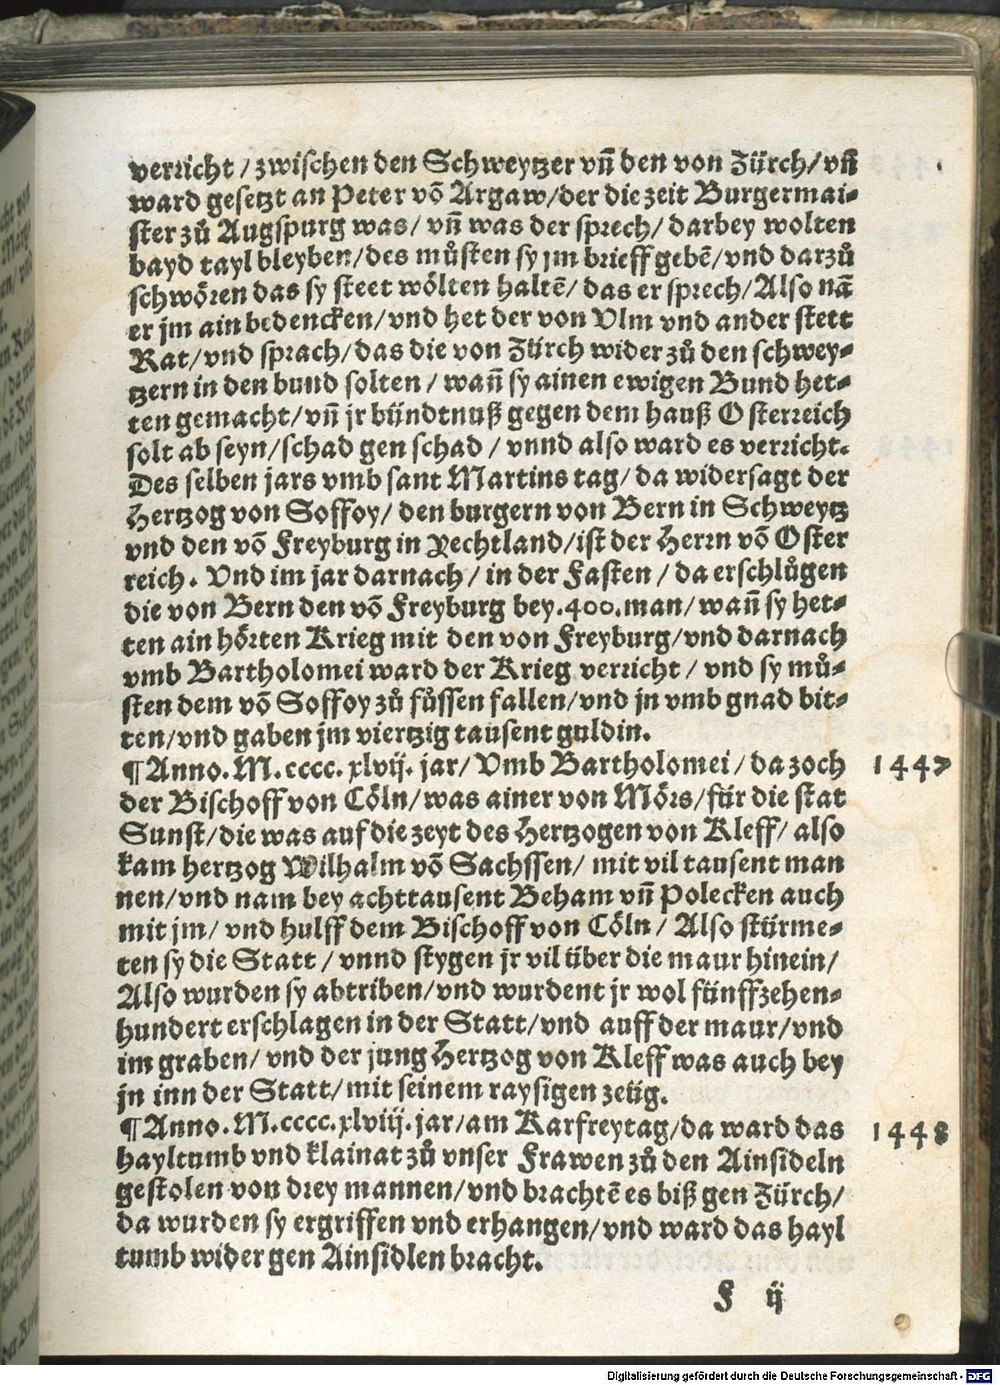 verricht / zwischen den Schweytzer vñ den von Zürch / vñ
ward gesetzt an Peter võ Argaw / der die zeit Burgermai⸗
ster zů Augspurg was / vñ was der sprech / darbey wolten
bayd tayl bleyben / des můsten sy jm brieff gebẽ / vnd darzů
schwören das sy steet wölten haltẽ / das er sprech / Also nã
er jm ain bedencken / vnd het der von Vlm vnd ander stett
Rat / vnd sprach / das die von Zürch wider zů den schwey⸗
tzern in den bund solten / wañ sy ainen ewigen Bund het⸗
ten gemacht / vñ jr bündtnuß gegen dem hauß Osterreich
solt ab seyn / schad gen schad / vnnd also ward es verricht.
Des selben jars vmb sant Martins tag / da widersagt der
Hertzog von Soffoy / den burgern von Bern in Schweytz
vnd den võ Freyburg in Yechtland / ist der Herrn võ Oster
reich. Vnd im jar darnach / in der Fasten / da erschlůgen
die von Bern den võ Freyburg bey .400. man / wañ sy het⸗
ten ain hörten Krieg mit den von Freyburg / vnd darnach
vmb Bartholomei ward der Krieg verricht / vnd sy mů⸗
sten dem võ Soffoy zů fůssen fallen / vnd jn vmb gnad bit⸗
ten / vnd gaben jm viertzig tausent guldin.
¶ Anno. M. cccc. xlvij. jar / Vmb Bartholomei / da zoch 1447
der Bischoff von Cöln / was ainer von Mörs / für die stat
Sunst / die was auf die zeyt des Hertzogen von Kleff / also
kam hertzog Wilhalm võ Sachssen / mit vil tausent man
nen / vnd nam bey achttausent Beham vñ Polecken auch
mit jm / vnd hulff dem Bischoff von Cöln / Also stürme⸗
ten sy die Statt / vnnd stygen jr vil über die maur hinein /
Also wurden sy abtriben / vnd wurdent jr wol fünffzehen⸗
hundert erschlagen in der Statt / vnd auff der maur / vnd
im graben / vnd der jung Hertzog von Kleff was auch bey
jn inn der Statt / mit seinem raysigen zeüg.
¶ Anno. M. cccc. xlviij. jar / am Karfreytag / da ward das 1448
hayltumb vnd klainat zů vnser Frawen zů den Ainsideln
gestolen von drey mannen / vnd brachtẽ es biß gen Zürch /
da wurden sy ergriffen vnd erhangen / vnd ward das hayl
tumb wider gen Ainsidlen bracht.
F ij
Digitalisierung gefördert durch die Deutsche Forschungsgemeinschaft - DFG